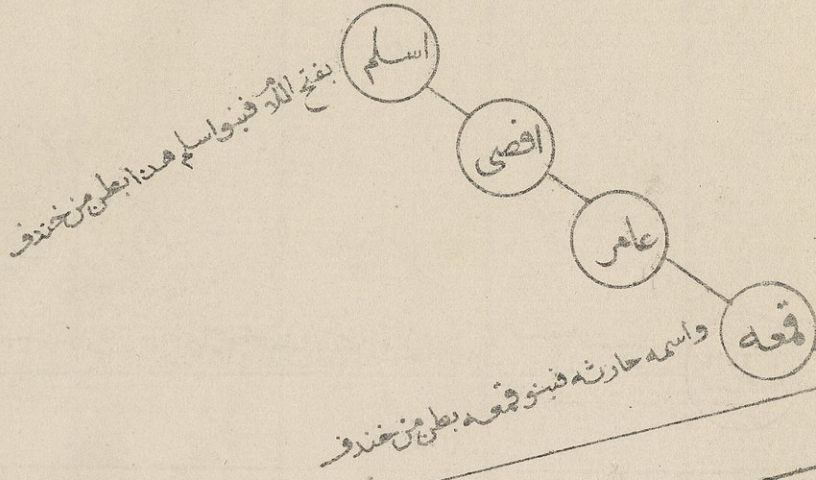 اسلم
بفتح اللام فبنو اسلم هذا بطن من خندف
افصى
عامر
قمعه
واسمه حارثه فبنو قمعه بطن من خندف